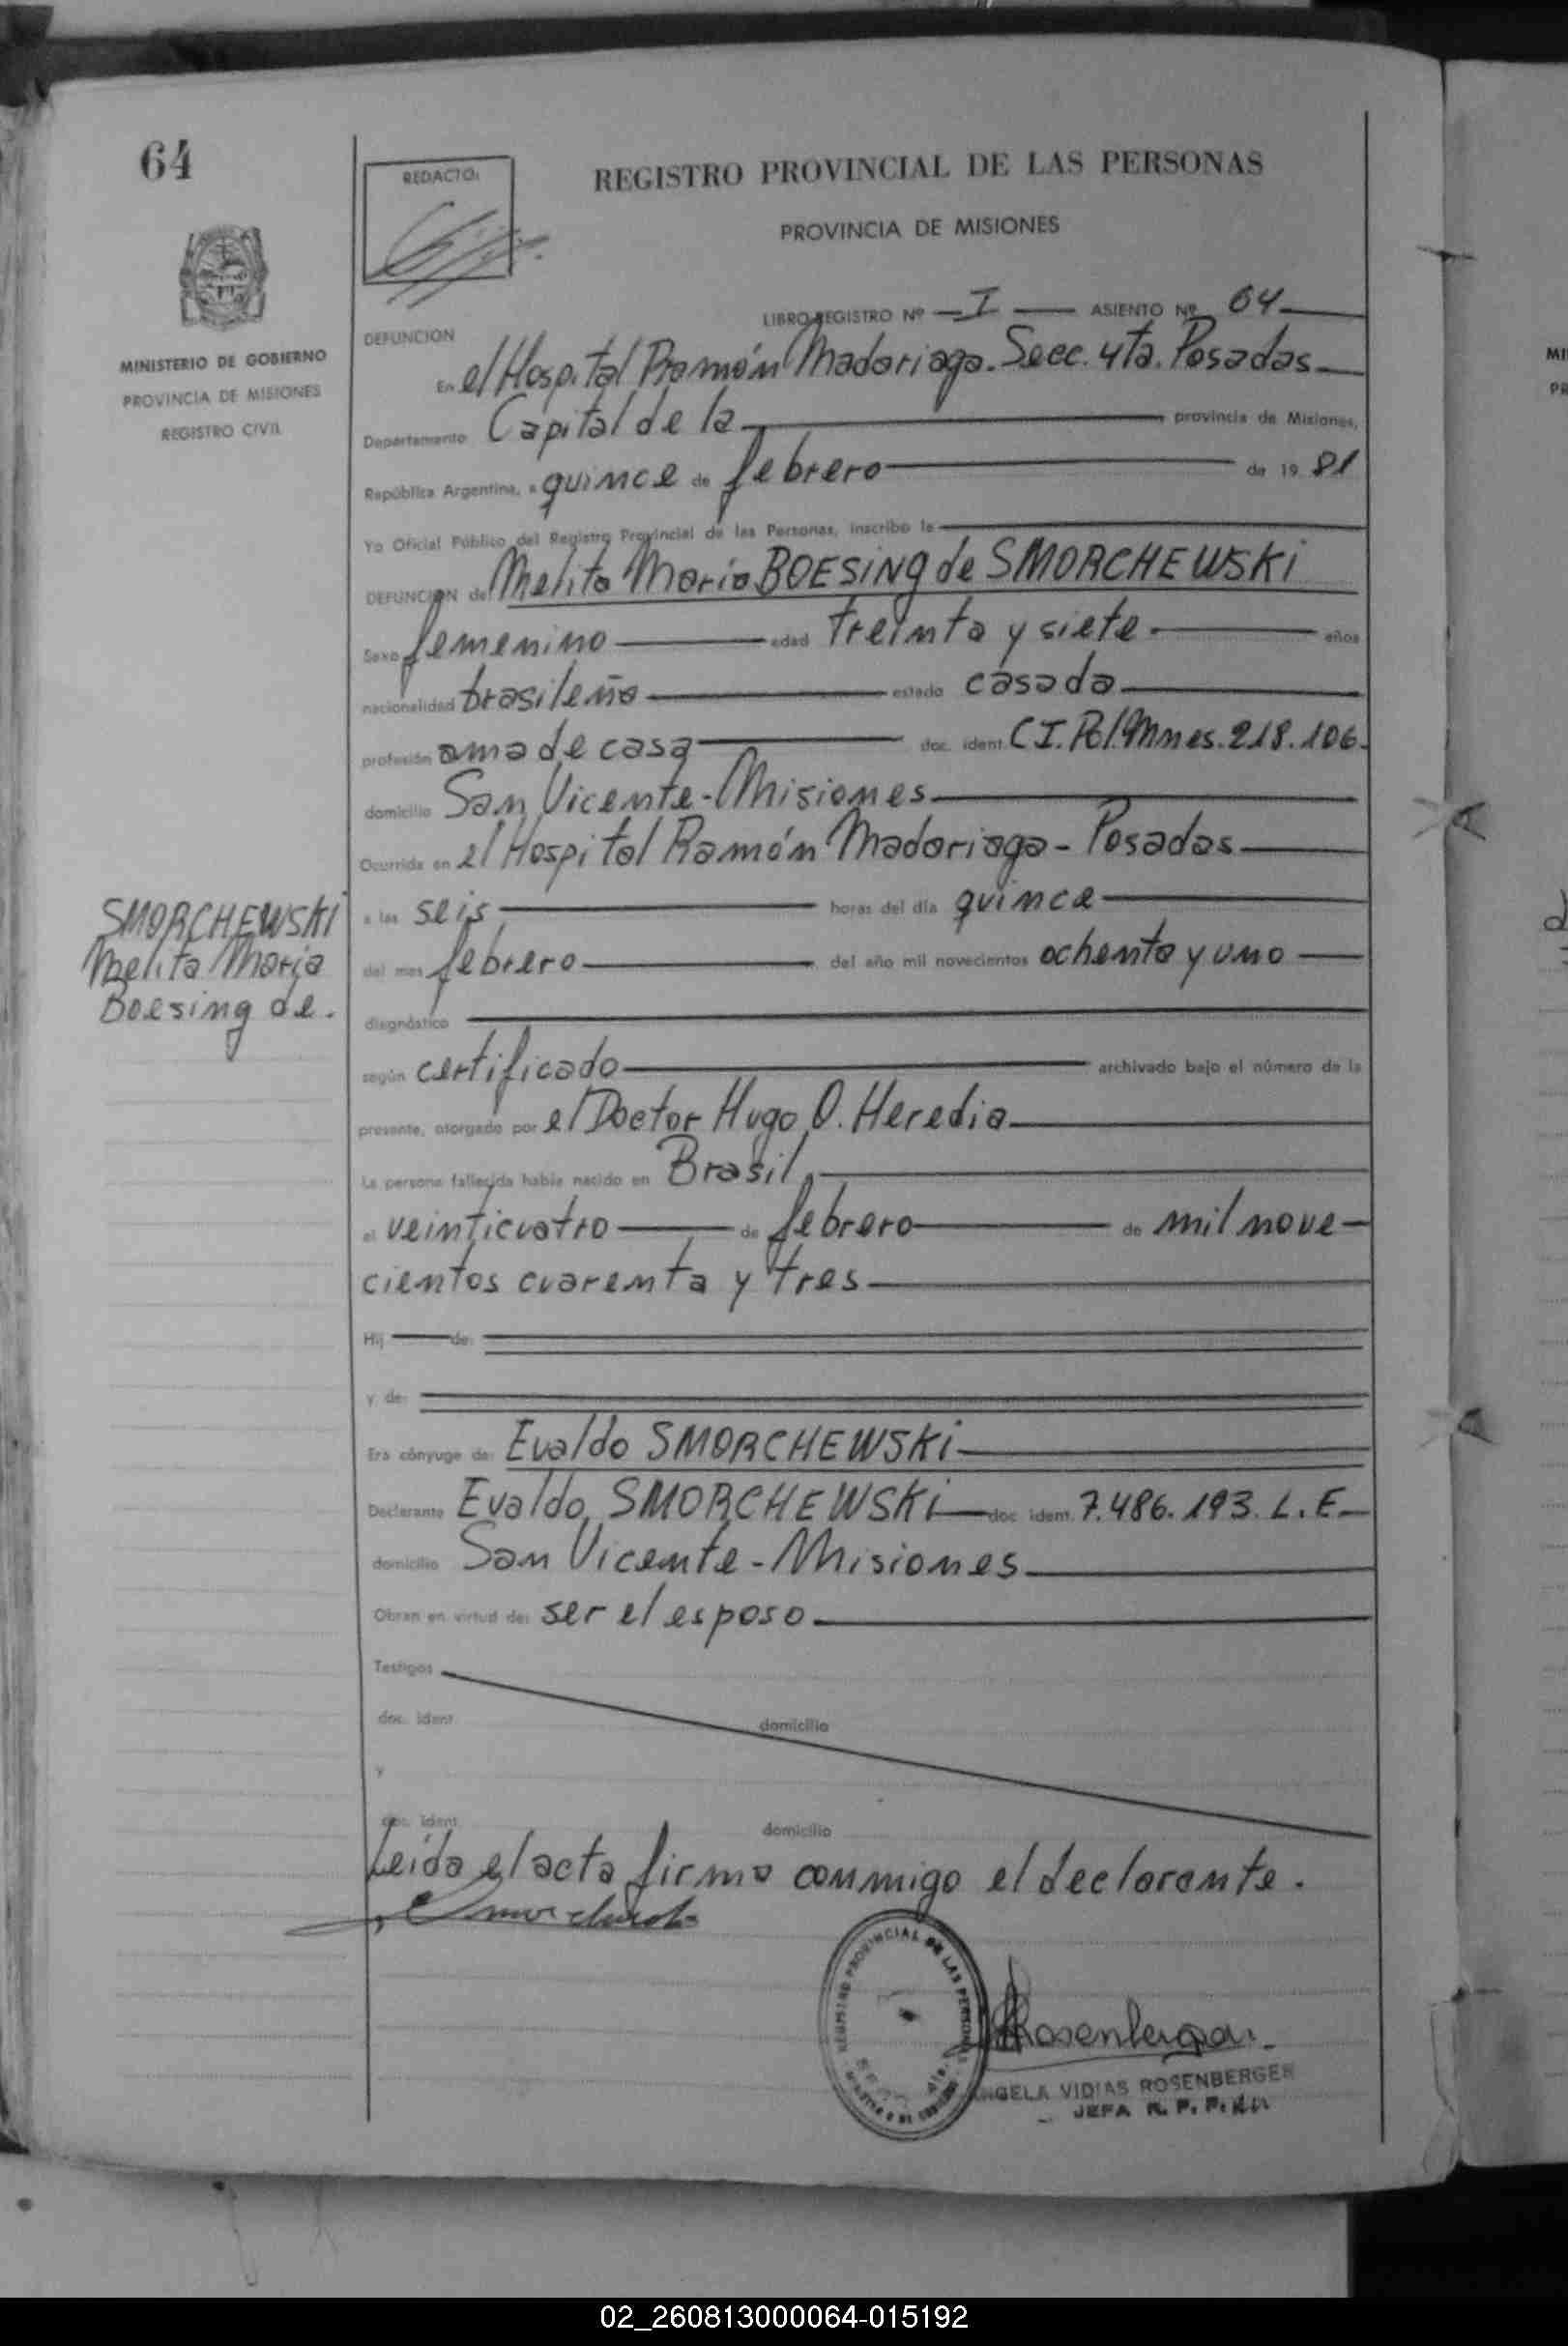 64
REDACTO:
REGISTRO PROVINCIAL DE LAS PERSONAS
PROVINCIA DE MISIONES
MINISTERIO DE GOBIERNO
PROVINCIA DE MISIONES
REGISTRO CIVIL
LIBRO REGISTRO Nº I ASIENTO Nº 64
DEFUNCION
En el Hospital Ramón Madariaga. Secc. 4ta. Posadas
Departamento Capital de la provincia de Misiones,
República Argentina, a quince de febrero de 19 81
Yo Oficial Público del Registro Provincial de las Personas, inscribo la
DEFUNCION de Melita Maria BOESING de SMORCHEWSKI
Sexo femenino edad treinta y siete años
nacionalidad brasileña estado casada
profesión ama de casa doc. ident. C.I. Pol. Mnes. 218.106.
domicilio San Vicente - Misiones
Ocurrida en el Hospital Ramón Madariaga - Posadas
a las seis horas del día quince
del mes febrero del año mil novecientos ochenta y uno
SMORCHEWSKI
Melita Maria
Boesing de.
diagnóstico
según certificado archivado bajo el número de la
presente, otorgado por el Doctor Hugo O. Heredia
La persona fallecida había nacido en Brasil,
el veinticuatro de febrero de mil nove-
cientos cuarenta y tres
Hij de:
y de:
Era cónyuge de: Evaldo SMORCHEWSKI
Declarante Evaldo SMORCHEWSKI doc. ident. 7.486.193. L.E.
domicilio San Vicente - Misiones
Obran en virtud de: ser el esposo
Testigos
doc. ident. domicilio
y
doc. ident. domicilio
Leida el acta firma conmigo el declarante.
REGISTRO PROVINCIAL DE LAS PERSONAS
Rosenberger
ANGELA VIDIAS ROSENBERGER
JEFA R. P. P.
02_260813000064-015192